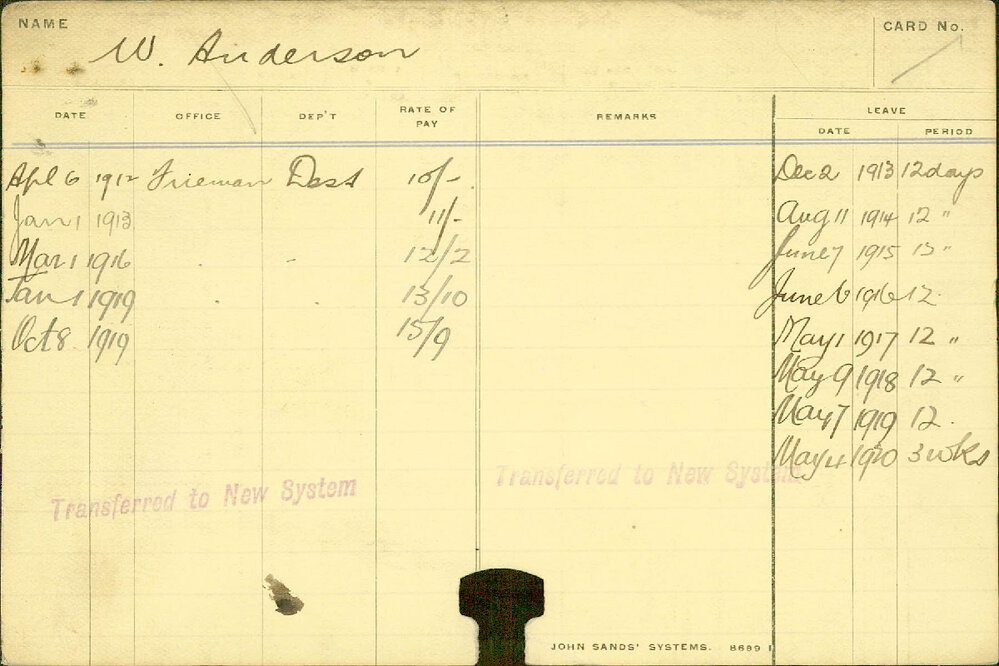 NAME W. Anderson CARD No. 1
DATE OFFICE DEP'T RATE OF PAY REMARKS LEAVE
DATE PERIOD
Apl 6 1912 Frieman Dest 10/- Dec 2 1913 12 days
Jan 1 1913 11/- Aug 11 1914 12 "
Mar 1 1916 12/2 June 7 1915 "
Jan 1 1919 13/10 June 6 1916 12
Oct 8 1919 15/9 May 1 1917 12 "
May 9 1918 12 "
May 7 1919 12
May 4 1920 3 wks
Transferred to New System Transferred to New System
JOHN SANDS' SYSTEMS. 8689